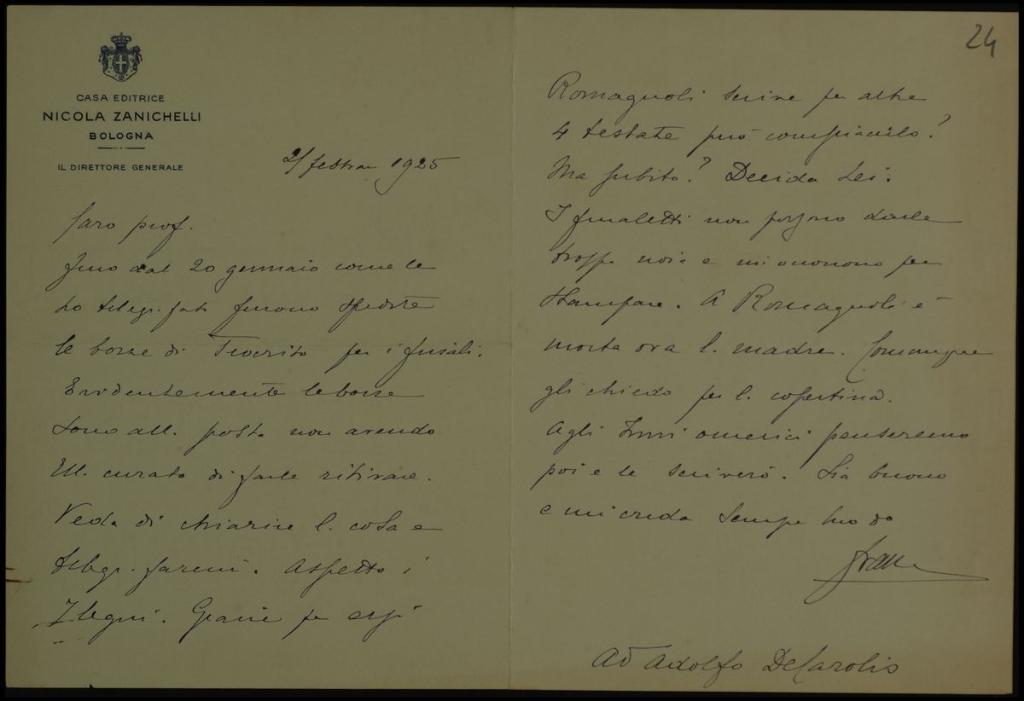 CASA EDITRICE
NICOLA ZANICHELLI
BOLOGNA
IL DIRETTORE GENERALE
2/ febbra 1925
Caro prof.
fino dal 20 gennaio come le
ho telegrafato furono spedite
le bozze di Teocrito per i fusali.
Evidentemente le bozze
sono all. posta non avendo
Ell. curato di farle ritirare.
Veda di chiarire l. cosa e
telegrafarmi. Aspetto i
7 legni. Grazie per essi
24
Romagnoli scrive per altre
4 testate può compiacerlo?
Ma subito? Decida Lei.
I finaletti non possono darle
troppa noia e mi occorrono per
stampare. A Romagnoli è
morta ora l. madre. Comunque
gli chiedo per l. copertina.
Agli Inni omerici penseremo
poi e le scriverò. Sia buono
e mi creda sempre suo do
Ad Adolfo DeCarolis